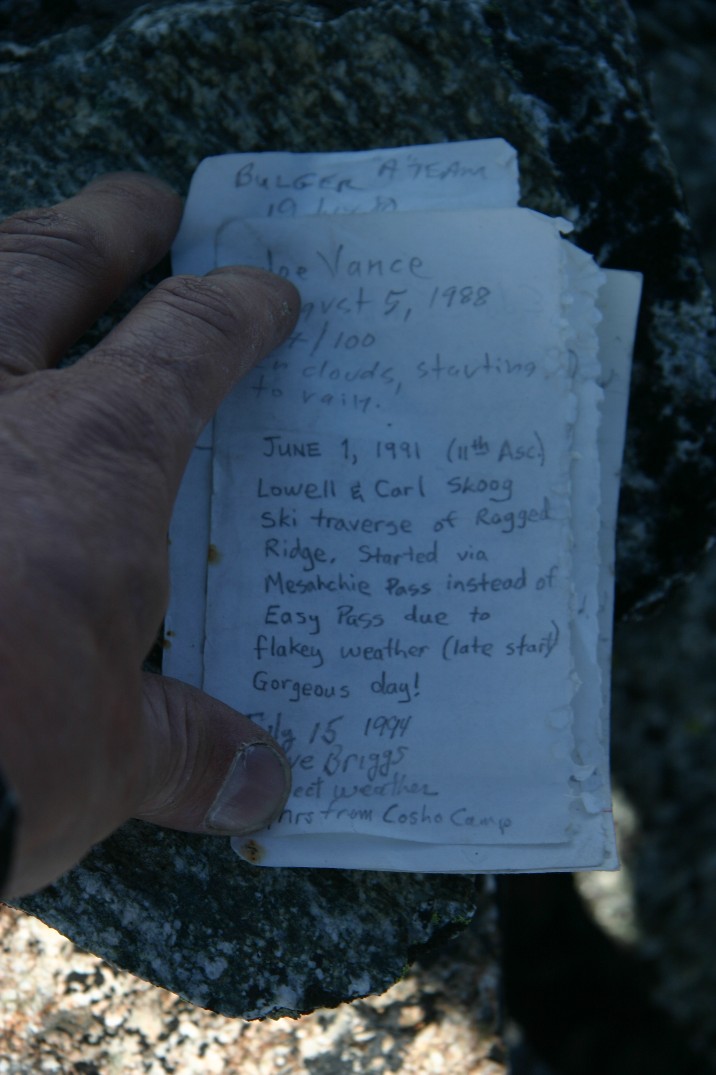 BULGER A TEAM
19
Joe Vance
gust 5, 1988
/100
in clouds, starting
to rain.
JUNE 1, 1991 (11th Asc.)
Lowell & Carl Skoog
Ski traverse of Ragged
Ridge. Started via
Mesahchie Pass instead of
Easy Pass due to
flakey weather (late start)
Gorgeous day!
July 15 1994
ve Briggs
ect weather
hrs from Cosho Camp